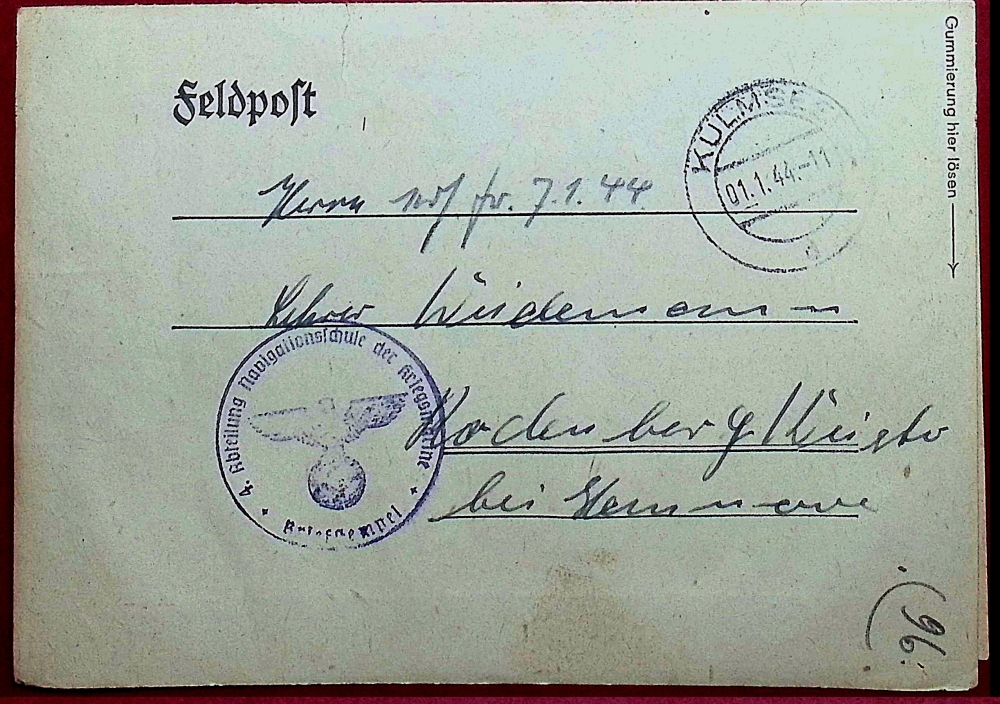 Feldpost
Gummierung hier lösen
KULMSEE
01.1.44.-11
d
Herrn 7.1.44
Lehrer Wiedemann
4. Abteilung Navigationsschule der Kriegsmarine
Briefstempel
Rodenberg
bei Hannover
(96.